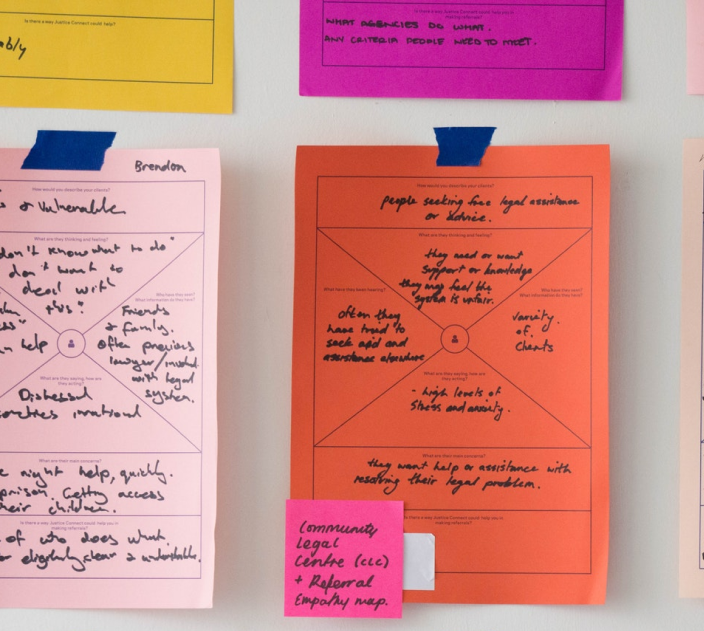 Is there a way Justice Connect could help?
ably
Is there a way Justice Connect could help us in
making referrals?
WHAT AGENCIES DO WHAT.
ANY CRITERIA PEOPLE NEED TO MEET.
Brendon
How would you describe your clients?
& Vulnerable
What are they thinking and feeling?
don't know what to do"
don't want to
deal with
this!"
Who have they seen?
What information do they have?
Friends
& family.
often previous
lawyer/involved
with legal
system.
help
What are they saying, how are
they acting?
Distressed
irrational
What are their main concerns?
might help, quickly.
prison. Getting access
their children.
Is there a way Justice Connect could help you in
making referrals?
of who does what.
eligibility clear &
How would you describe your clients?
people seeking free legal assistance
or advice.
What are they thinking and feeling?
they need or want
support or knowledge
they may feel the
system is unfair.
What have they been hearing?
often they
have tried to
seek aid and
assistance elsewhere
Who have they seen?
What information do they have?
variety
of
clients
What are they saying, how are
they acting?
- high levels of
stress and anxiety.
What are their main concerns?
they want help or assistance with
resolving their legal problem.
Is there a way Justice Connect could help you in
making referrals?
Community
Legal
Centre (CLC)
+ Referral
Empathy map.